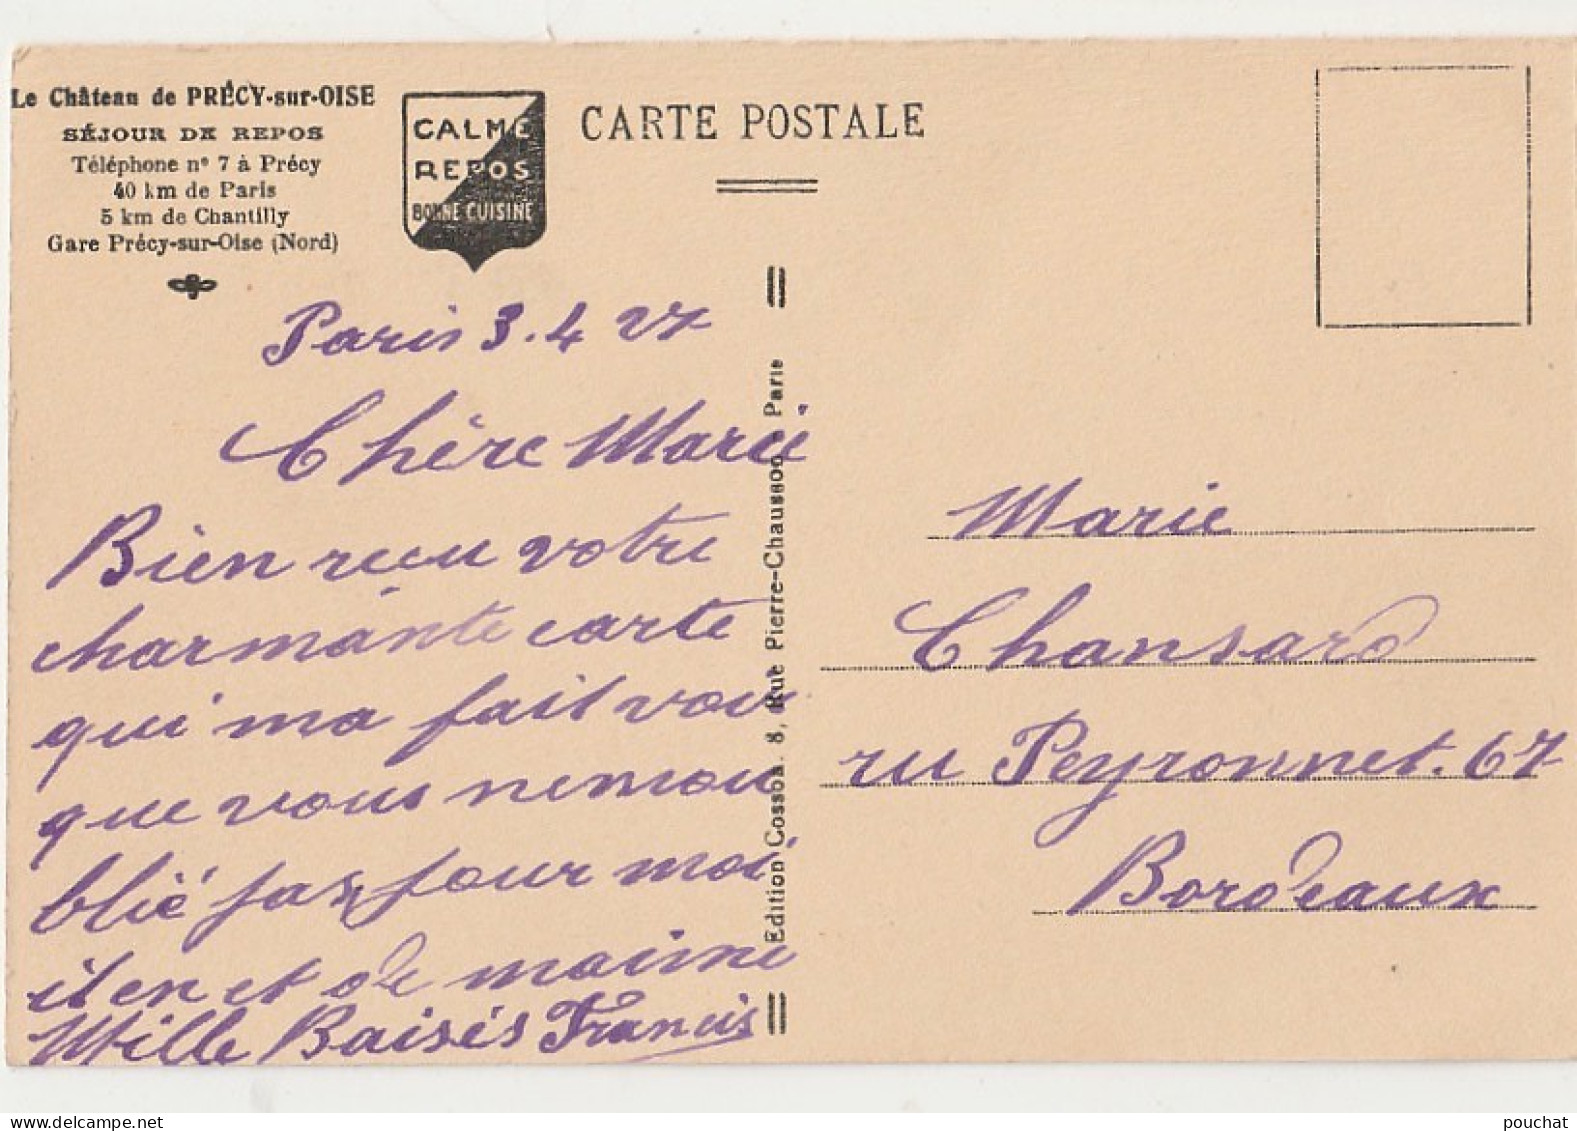 Le Château de PRÉCY-sur-OISE
SÉJOUR DE REPOS
Téléphone n° 7 à Précy
40 km de Paris
5 km de Chantilly
Gare Précy-sur-Oise (Nord)
CALME
REPOS
BONNE CUISINE
CARTE POSTALE
Paris 3.4 27
Chère Marie
Bien recu votre
charmante carte
qui ma fait voir
que vous nemou
blié pas pour moi
il en et de maime
Mille Baisés Francis
Edition Cosson. 8, Rue Pierre-Chausson - Paris
Marie
Chansard
ru Peyronnet. 67
Bordeaux
www.delcampe.net
pouchat